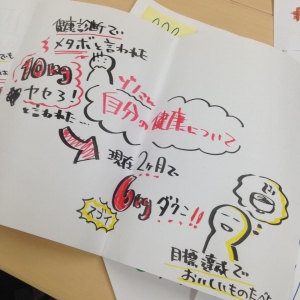 健康診断で
メタボと言われた
10kg
ヤセろ!
と言われた…
自分の健康について
現在2ヶ月で
6kg
ダウン!!
スゴイ
目標達成で
おいしいものたべ